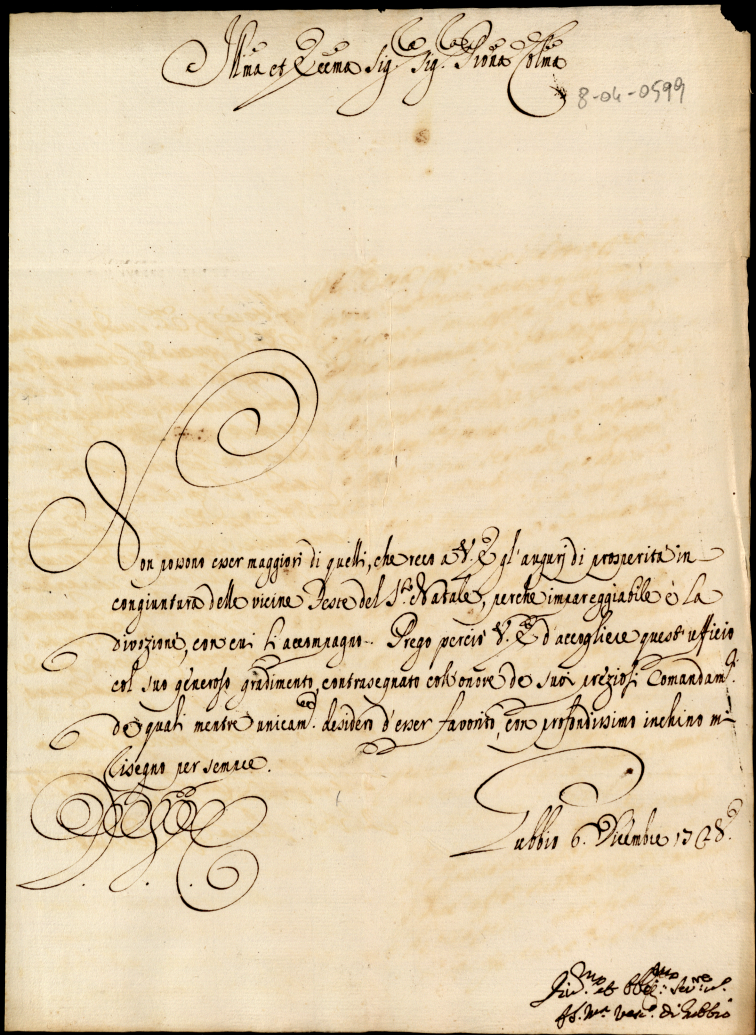 Ill.ma et Ecc.ma Sig.ra Sig.ra P.rona Col.ma
8-04-0599
Non possono esser maggiori di quelli, che reco a V. E. gl'augurj di prosperità in
congiuntura delle vicine Feste del S.to Natale, perche impareggiabile è la
divozione, con cui li accompagno. Prego perciò V. E. d'accogliere quest'ufficio
col suo generoso gradimento, contrasegnato coll'onore de suoi preziosi Comandam.ti
de quali mentre unicam.te desidero d'esser favorito, con profondissimo inchino mi
rasegno per sempre.
Gubbio 6. Dicembre 1728.
Div.mo et Obblig.mo Ser.re
di Gubbio